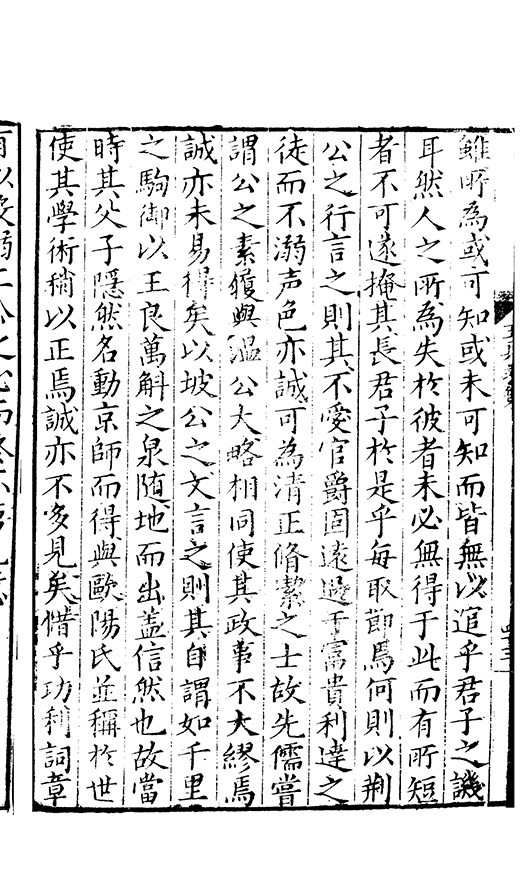 雖所為或可知或未可知而皆無以逭乎君子之譏
耳然人之所為失於彼者未必無得于此而有所短
者不可遂掩其長君子於是乎每取節焉何則以荆
公之行言之則其不愛官爵固遠過于富貴利達之
徒而不溺声色亦誠可為清正脩潔之士故先儒嘗
謂公之素履與温公大略相同使其政事不大繆焉
誠亦未易得矣以坡公之文言之則其自謂如千里
之駒御以王良萬斛之泉随地而出盖信然也故當
時其父子隱然名動京師而得與歐陽氏並稱於世
使其學術稍以正焉誠亦不多見矣借乎功利詞章